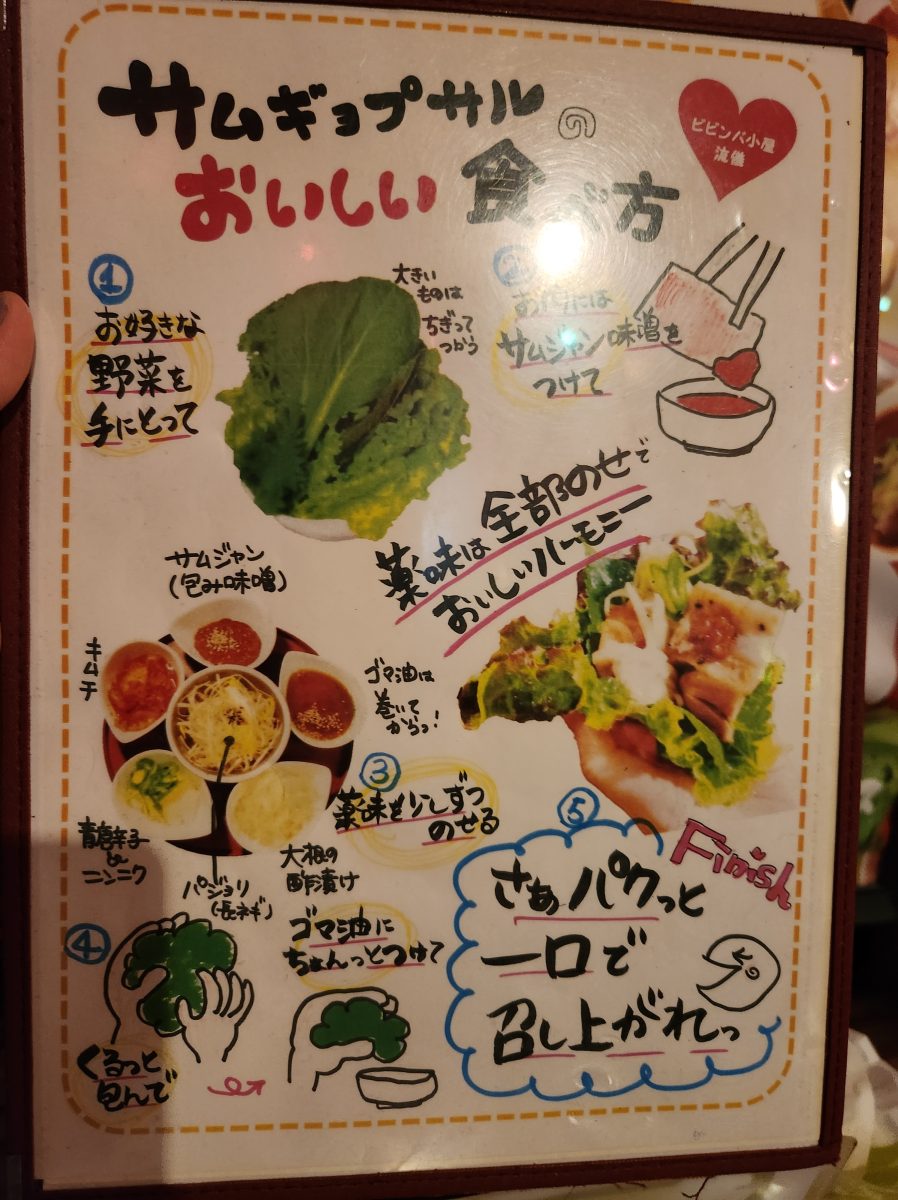 サムギョプサルの
おいしい食べ方
ビビンバ小屋
流儀
①
お好きな
野菜を
手にとって
大きい
ものは
ちぎって
つかう
②
お肉には
サムジャン味噌を
つけて
薬味は全部のせで
おいしいハーモニー
サムジャン
(包み味噌)
キムチ
ゴマ油は
巻いて
からっ!
青唐辛子
&
ニンニク
パジョリ
(長ネギ)
大根の
酢漬け
③
薬味を少しずつ
のせる
④
くるっと
包んで
ゴマ油に
ちょんっとつけて
⑤
Finish
さぁパクっと
一口で
召し上がれっ